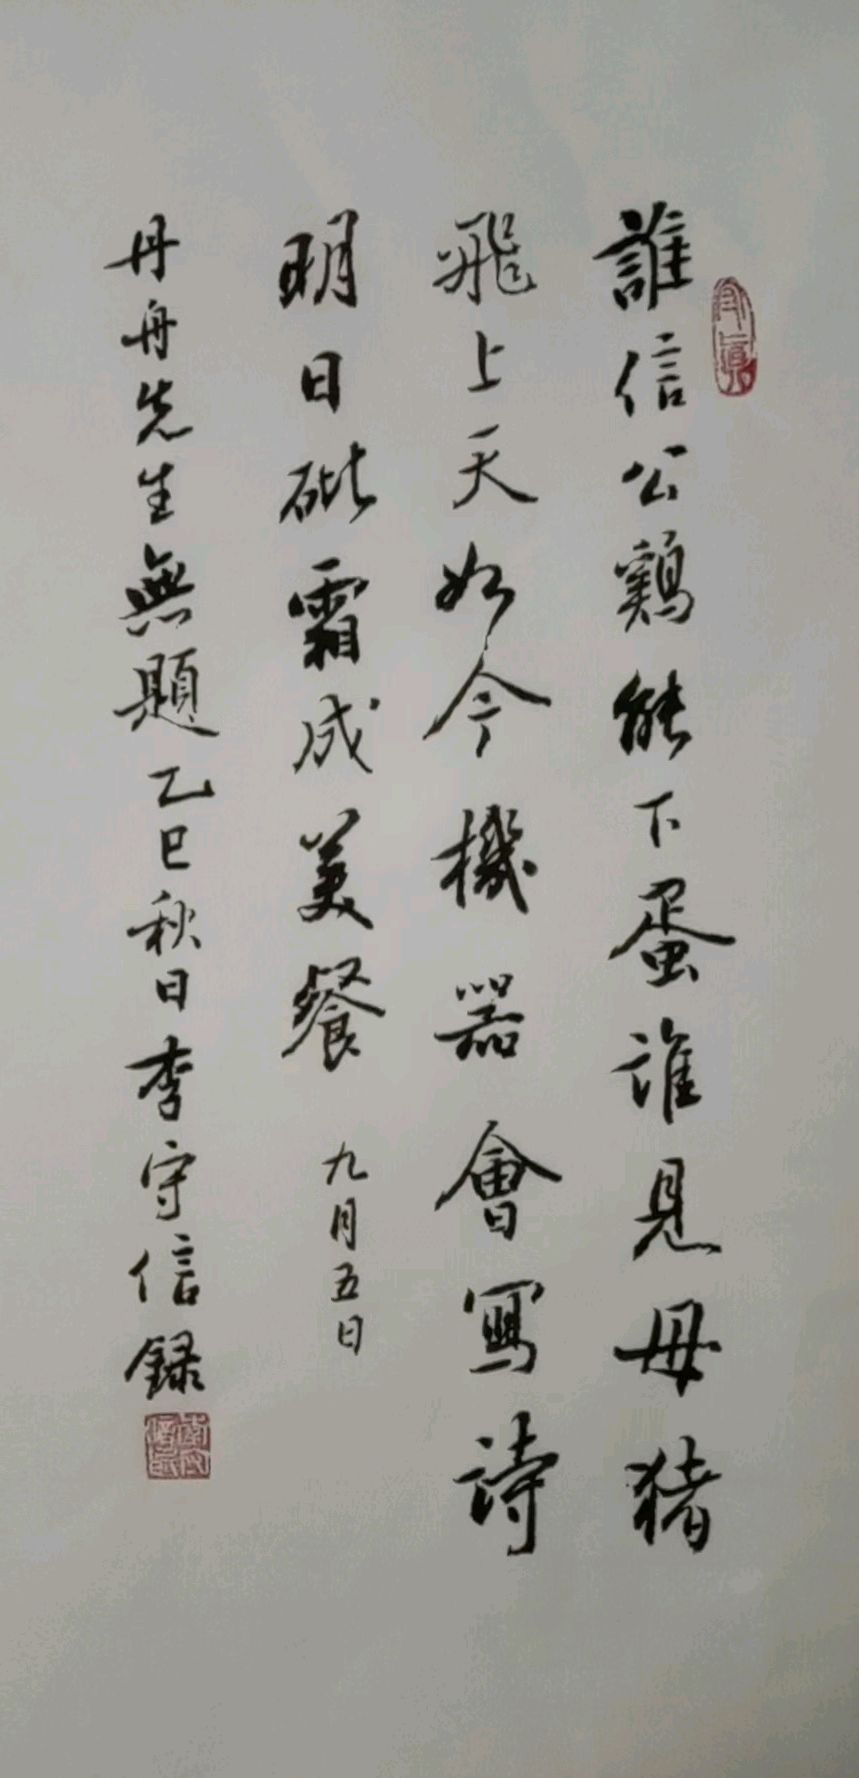 誰信公鷄能下蛋誰見母猪
飛上天如今機器會寫詩
明日砒霜成美餐
九月五日
丹舟先生無題乙巳秋日李守信録